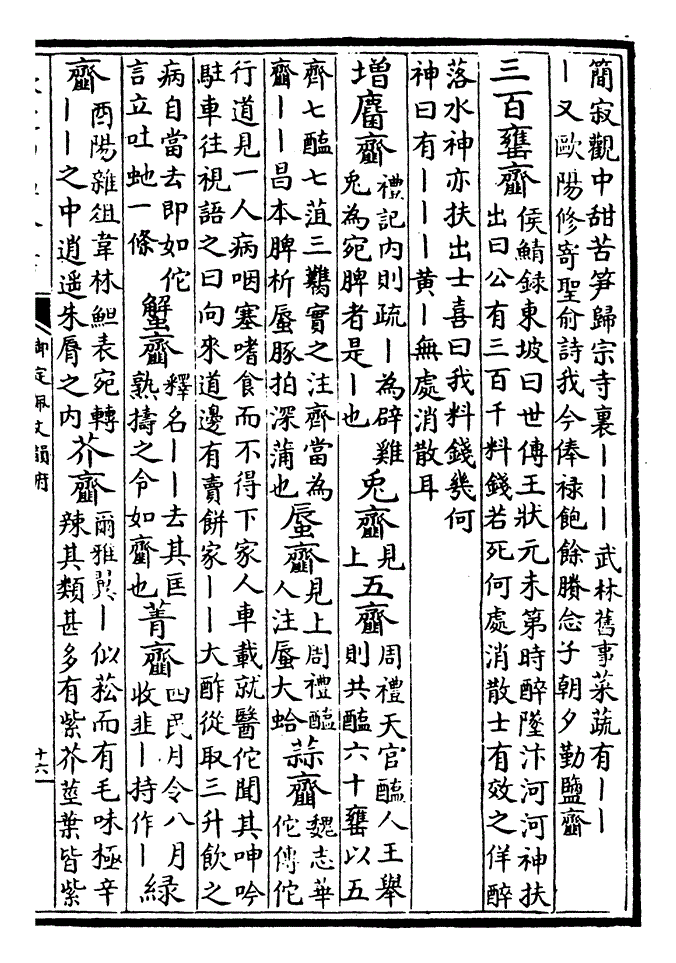 簡寂觀中甜苦笋歸宗寺裏丨丨丨 武林舊事菜蔬有丨丨
丨又歐陽修寄聖俞詩我今俸禄飽餘賸念子朝夕勤鹽齏
三百罋齏
侯鯖録東坡曰世傳王狀元未第時醉墜汴河河神扶
出曰公有三百千料錢若死何處消散士有效之佯醉
落水神亦扶出士喜曰我料錢㡬何
神曰有丨丨丨黄丨無處消散耳
増麕齏
禮記内則疏丨為辟雞
兎為宛脾者是丨也
兎齏
見
上
五齏
周禮天官醢人王舉
則共醢六十罋以五
齊七醢七菹三臡實之注齊當為
齏丨丨昌本脾析蜃豚拍深蒲也
蜃齏
見上周禮醢
人注蜃大蛤
蒜齏
魏志華
佗傳佗
行道見一人病咽塞嗜食而不得下家人車載就醫佗聞其呻吟
駐車往視語之曰向來道邊有賣餅家丨丨大酢從取三升飲之
病自當去即如佗
言立吐虵一條
蟹齏
釋名丨丨去其匡
熟擣之令如齏也
菁齏
四民月令八月
收韭丨持作丨
緑
齏
酉陽雜俎韋林䱇表宛轉
丨丨之中逍遥朱脣之内
芥齏
爾雅翼丨似菘而有毛味極辛
辣其類甚多有紫芥莖葉皆紫
御定佩文韻府
十六